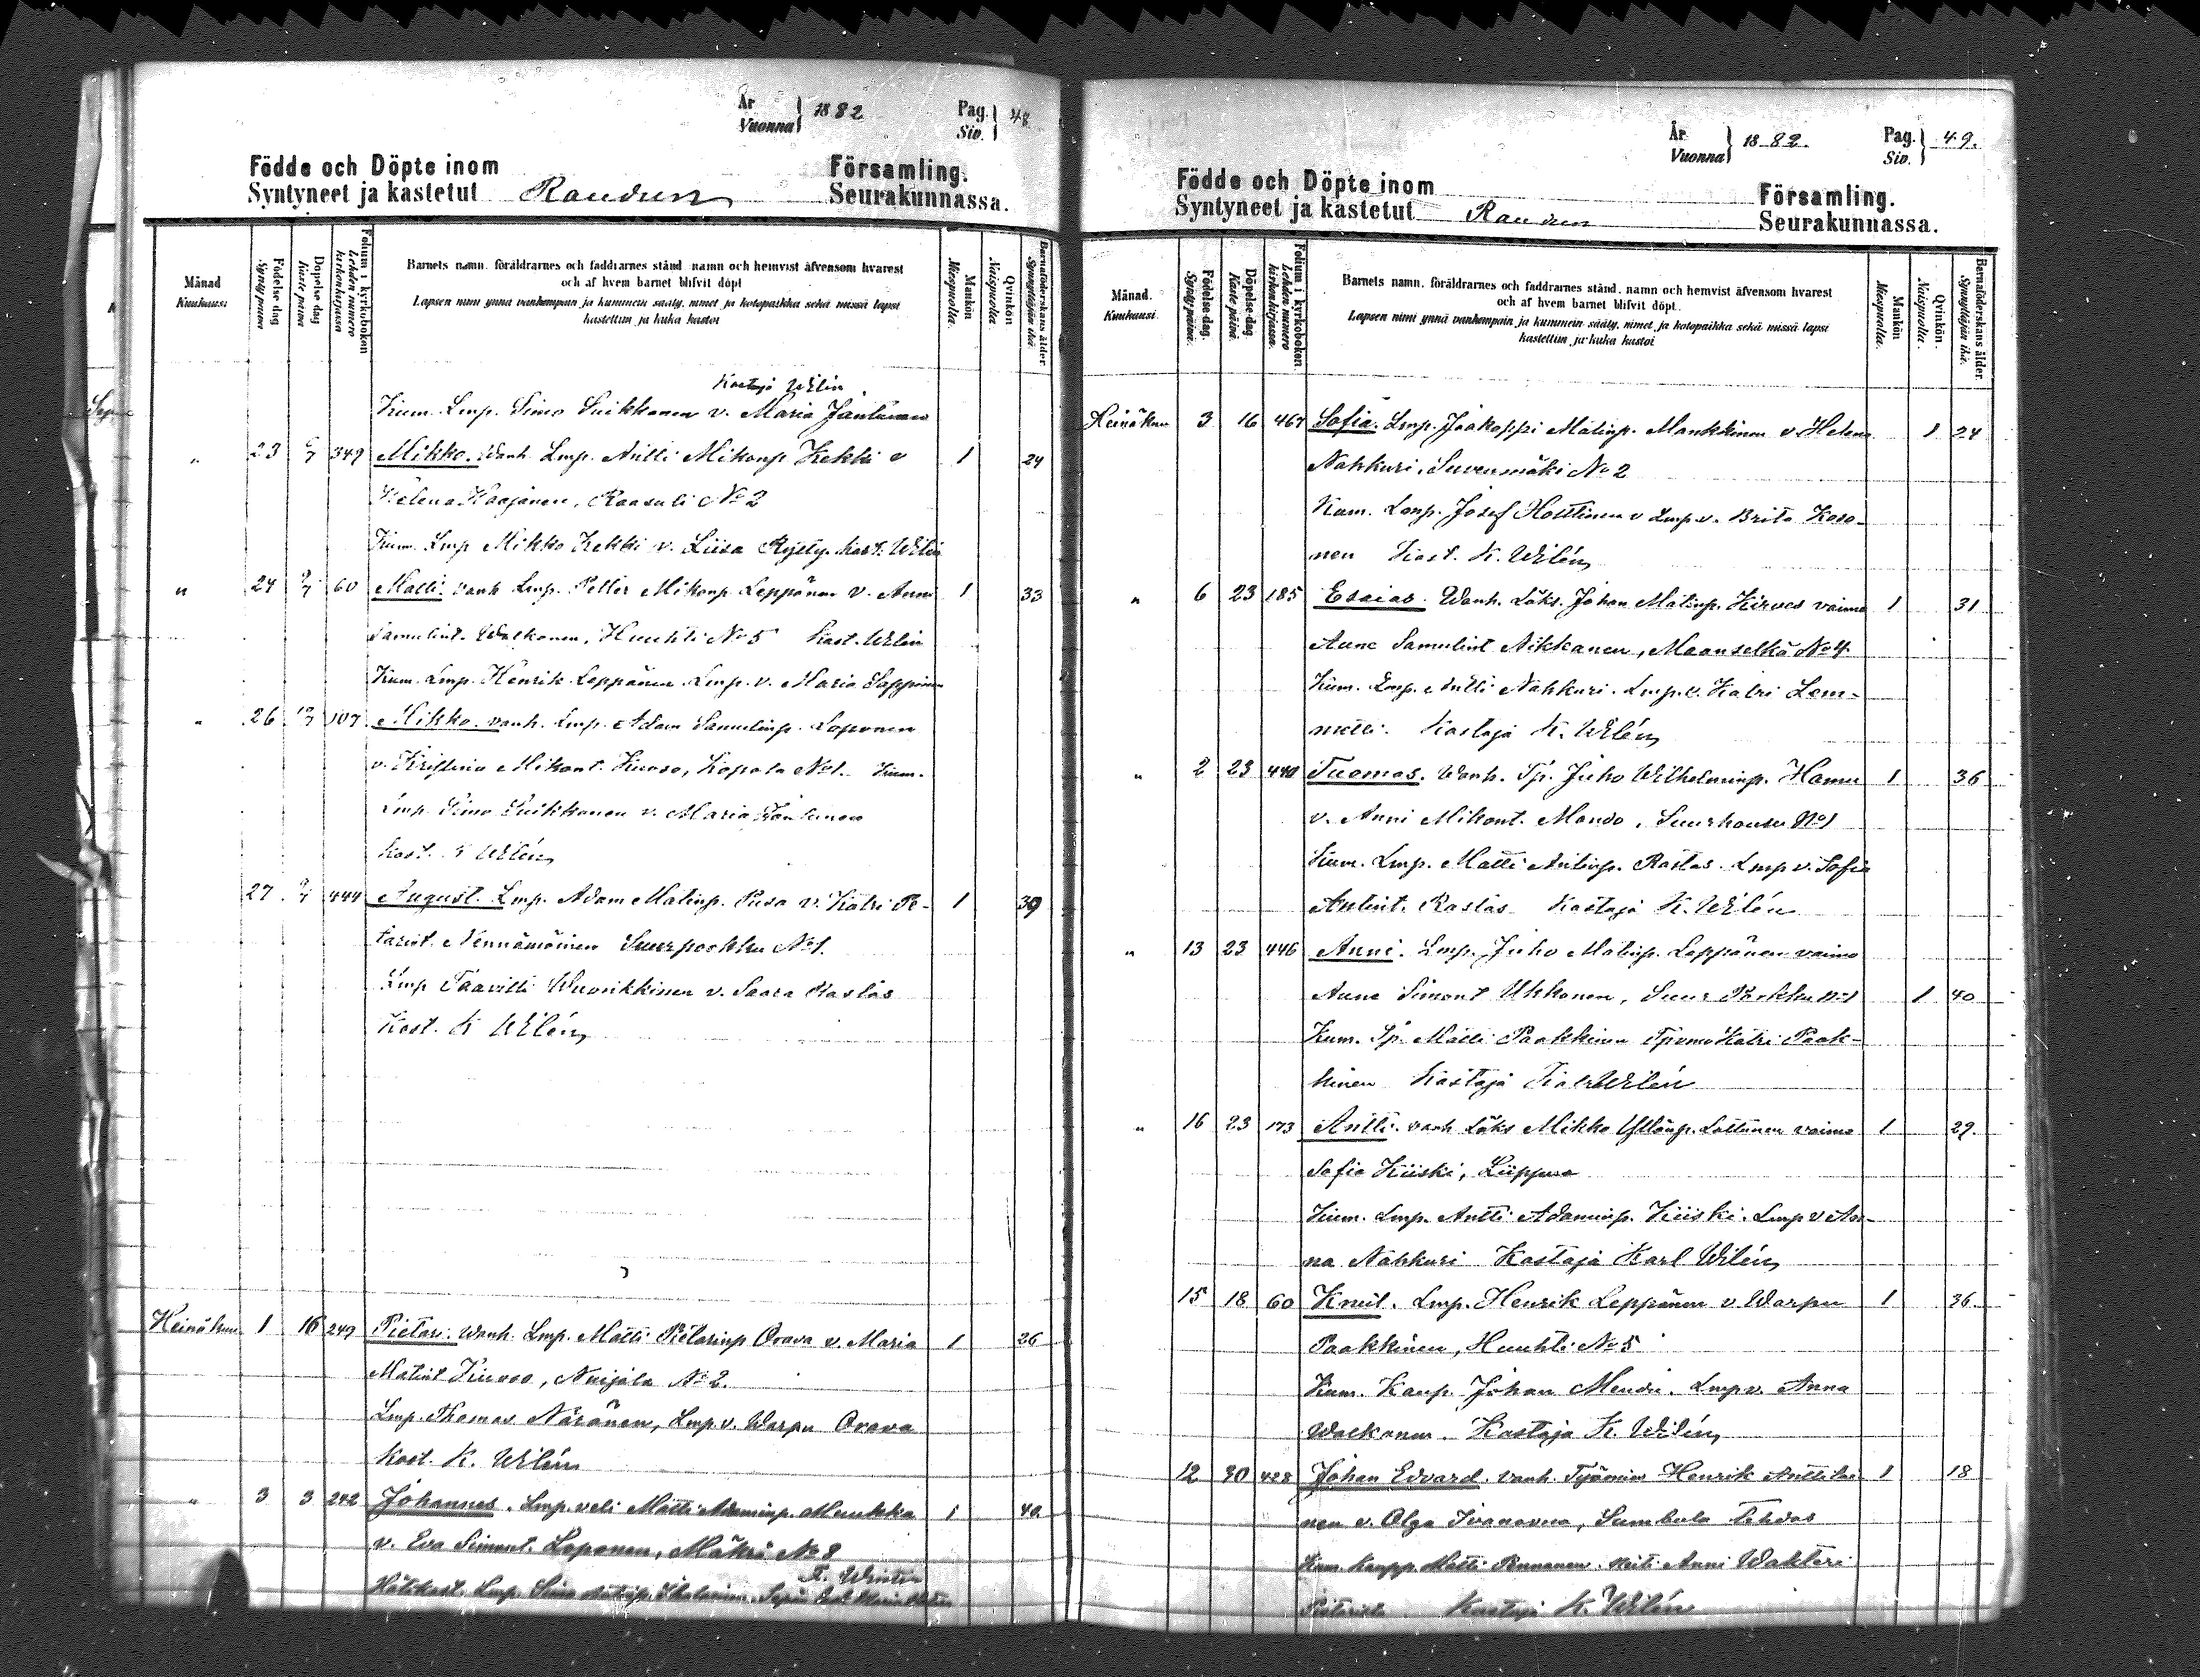 År
Vuonna } 1882
Pag.
Siv. } 48
Födde och Döpte inom
Syntyneet ja kastetut Raudun
Församling.
Seurakunnassa.
Månad
Kuukausi
Födelse dag
Synty päiwä
Döpelse dag
Kaste päiwä
Folium i kyrkoboken
Lehden numero kirkonkirjassa
Barnets namn, föräldrarnes och faddrarnes stånd, namn och hemvist äfvensom hvarest
och af hvem barnet blifvit döpt
Lapsen nimi ynnä vanhempain ja kummein sääty, nimet ja kotopaikka sekä missä lapsi
kastettiin ja kuka kastoi
Mankön
Miespuolia.
Qvinkön
Naispuolia
Barnaföderskans ålder.
Synnyttäjän ikä.
Kastaja Wilén
Kum. Lmp. Simo Suikkanen v. Maria Jäntunen
" 23 6/7 349 Mikko. Wanh. Lmp. Antti Mikonp Kekki v 1 24
Helena Haajanen, Raasuli No 2
Kum. Lmp Mikko Kekki v. Liisa Kast. Wilén
" 24 9/7 60 Matti. vanh Lmp. Petter Mikonp Leppänen v. Anni 1 33
Samulint. Walkonen, Huuhti No 5 Kast. Wilén
Kum. Lmp. Henrik Leppänen Lmp. v. Maria
" 26 107 Mikko. vanh. Lmp. Adam Samulinp. Loponen
v. Kristina Mikont. Kiuoso, No 1. Kum.
Lmp Simo Suikkanen v. Maria Jäntunen
Kast. K Wilén
27 9/7 444 August. Lmp. Adam Matinp. Pusa v. Katri Pe- 1 39
tarint. Nennämöinen Suurporkku No 1.
Lmp Taavitti Wuorikkinen v. Saara Rastas
Kast. K Wilén
Heinäkuu 1 16 249 Pietari. Wanh. Lmp. Matti Pietarinp Orava v. Maria 1 26
Matint Kiuoso, Nuijala No 2.
Lmp. Thomas Näränen, Lmp. v. Warpu Orava
Kast. K. Wilén
" 3 3 242 Johannes. Lmp. veli Matti Adaminp. Muukka 1 40.
v. Eva Simont. Loponen, Mäkrä No 8
Hätäkast. Lmp. Simo
År
Vuonna } 1882.
Pag.
Siv. } 49.
Födde och Döpte inom
Syntyneet ja kastetut Raudun
Församling.
Seurakunnassa.
Månad.
Kuukausi.
Födelse-dag.
Syntypäiwä.
Döpelse-dag.
Kaste päiwä.
Folium i kyrkoboken
Lehden numero kirkonkirjassa.
Barnets namn, föräldrarnes och faddrarnes stånd, namn och hemvist äfvensom hvarest
och af hvem barnet blifvit döpt.
Lapsen nimi ynnä vanhempain ja kummein sääty, nimet ja kotopaikka sekä missä lapsi
kastettiin ja kuka kastoi
Mankön
Miespuolia.
Qvinkön.
Naispuolia.
Barnaföderskans ålder.
Synnyttäjän ikä.
Heinäkuu 3 16 467 Sofia. Lmp. Jaakoppi Matinp. Mankkinen v. Helena 1 24
Nahkuri, Suvenmäki No 2
Kum. Lmp. Josef Hottinen v Lmp. v. Brita Koso-
nen Kast. K. Wilén
" 6 23 185 Esaias. Wanh. Läks. Johan Matinp. Hirves vaimo 1 31
Anne Samulint Aikkanen, Maanselkä No 4
Kum. Lmp. Antti Nahkuri. Lmp. v. Katri Lem-
metti. Kastaja K. Wilén
" 2 23 440 Tuomas. Wanh. Tp. Juho Wilhelminp. Hamu 1 36
v. Anni Mikont. Mando, Suurhousu No 1
Kum. Lmp. Matti Antinp. Rastas. Lmp v. Sofia
Antint. Rastas Kastaja K. Wilén
" 13 23 446 Anni. Lmp. Juho Matinp. Leppänen vaimo
Anne Simont Ukkonen, Suur Porkku No 1 1 40
Kum. Tp. Matti Paakkinen Katri Paak-
kinen Kastaja Wilén
" 16 23 173 Antti. vanh Läks Mikko Yrjönp. Lattunen vaimo 1 29.
Sofia Kiiski, Liippua
Kum. Lmp. Antti Adaminp. Kiiski. Lmp v An-
na Nahkuri Kastaja Karl Wilén
15 18 60 Knut. Lmp. Henrik Leppänen v. Warpu 1 36.
Paakkinen, Huuhti No 5
Kum. Kaup. Johan Lmp v. Anna
Walkonen. Kastaja K. Wilén
12 20 428 Johan Edvard. vanh. Työmies Henrik Anttilai 1 18
nen v. Olga Ivanovna, Sumbula Tehdas
Kum. Kaupp. Matti Ronnanen. neiti Anni Wakteri
Kastaja K. Wilén